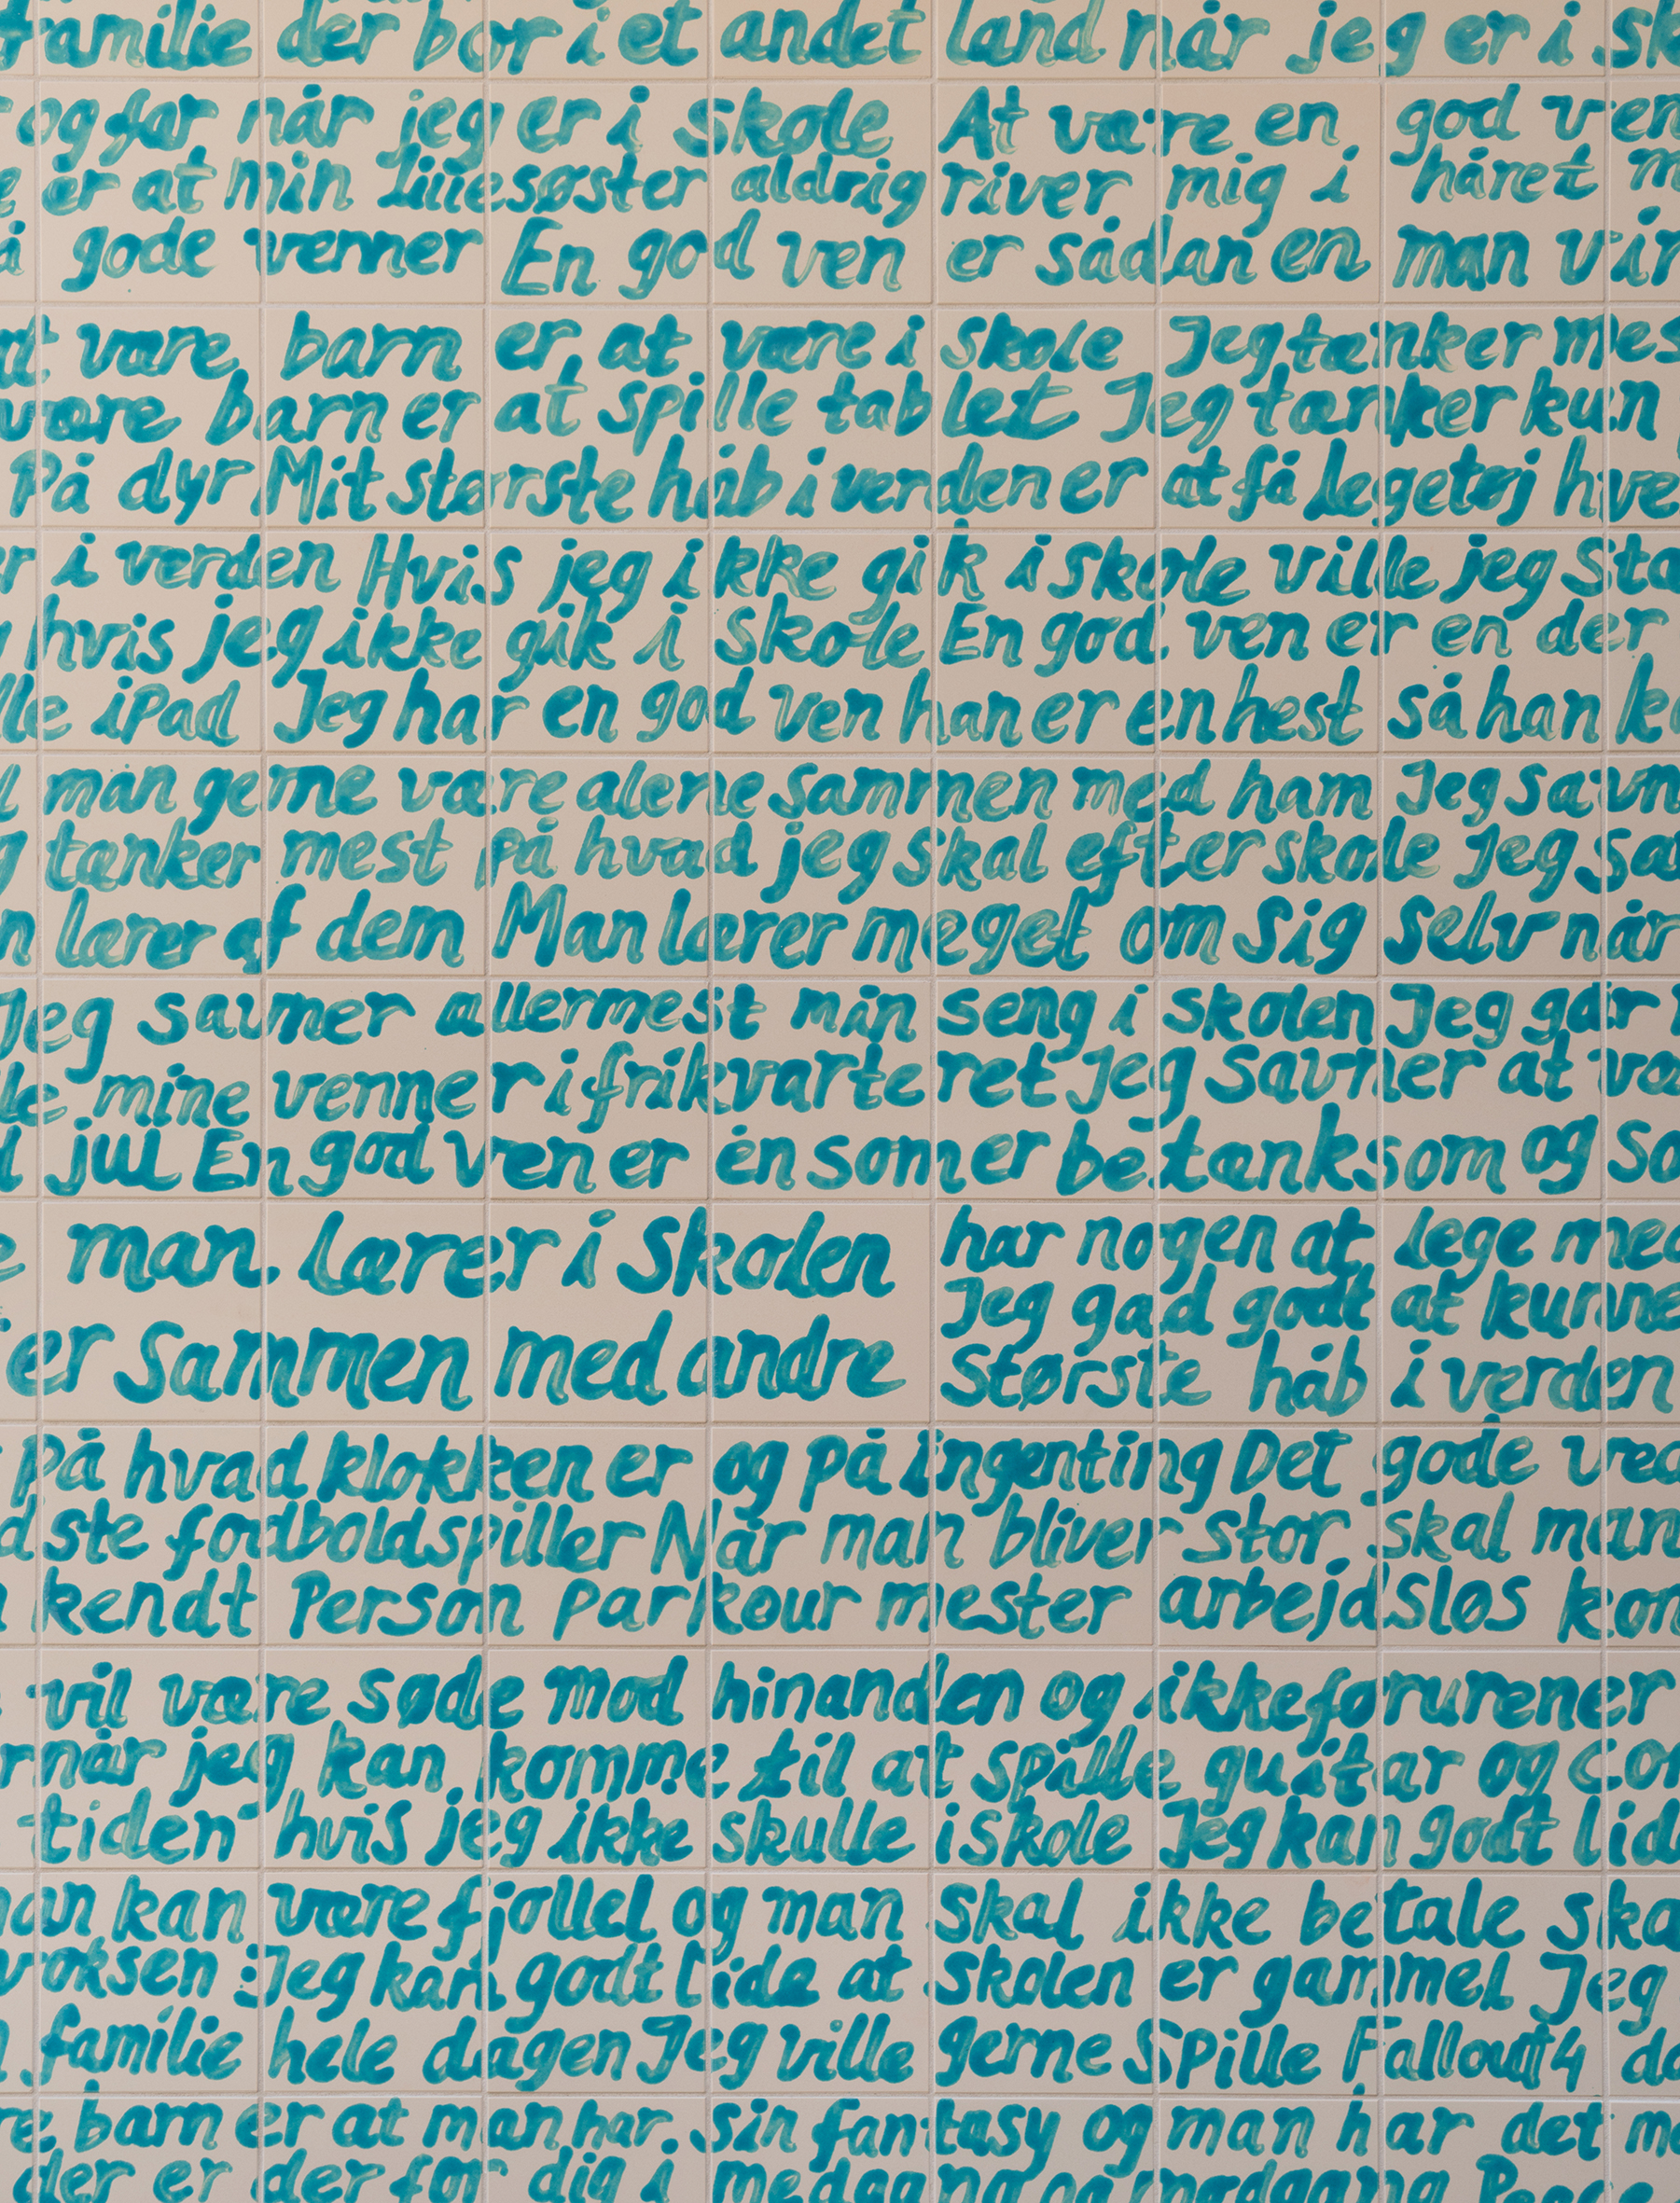 familie der bor i et andet land når jeg er i sk
og far når jeg er i skole At være en god ven
er at min lillesøster aldrig river mig i håret m
å gode venner En god ven er sådan en man vir
at være barn er at være i skole Jeg tænker mes
være barn er at spille tablet Jeg tænker kun
På dyr Mit største håb i verden er at få legetøj hve
er i verden Hvis jeg ikke gik i skole ville jeg Sto
hvis jeg ikke gik i skole En god ven er en der
lle iPad Jeg har en god ven han er en hest så han k
man gerne være alene sammen med ham Jeg savn
g tænker mest på hvad jeg skal efter skole Jeg sa
n lærer af dem Man lærer meget om sig selv når
Jeg savner allermest min seng i skolen Jeg går
le mine venner i frikvarteret Jeg savner at væ
d jul En god ven er en som er betænksom og so
e man lærer i skolen
er sammen med andre
har nogen at lege med
Jeg gad godt at kunne
største håb i verden
På hvad klokken er og på ingenting Det gode ved
dste fodboldspiller Når man bliver stor skal man
kendt Person parkour mester arbejdsløs kon
vil være søde mod hinanden og ikke forurener
når jeg kan komme til at spille guitar og Con
tiden hvis jeg ikke skulle i skole Jeg kan godt lid
man kan være fjollet og man skal ikke betale ska
voksen Jeg kan godt lide at skolen er gammel Jeg
familie hele dagen Jeg ville gerne Spille Fallout 4 da
re barn er at man har sin fantasy og man har det m
der er der for dig i medgang og modgang